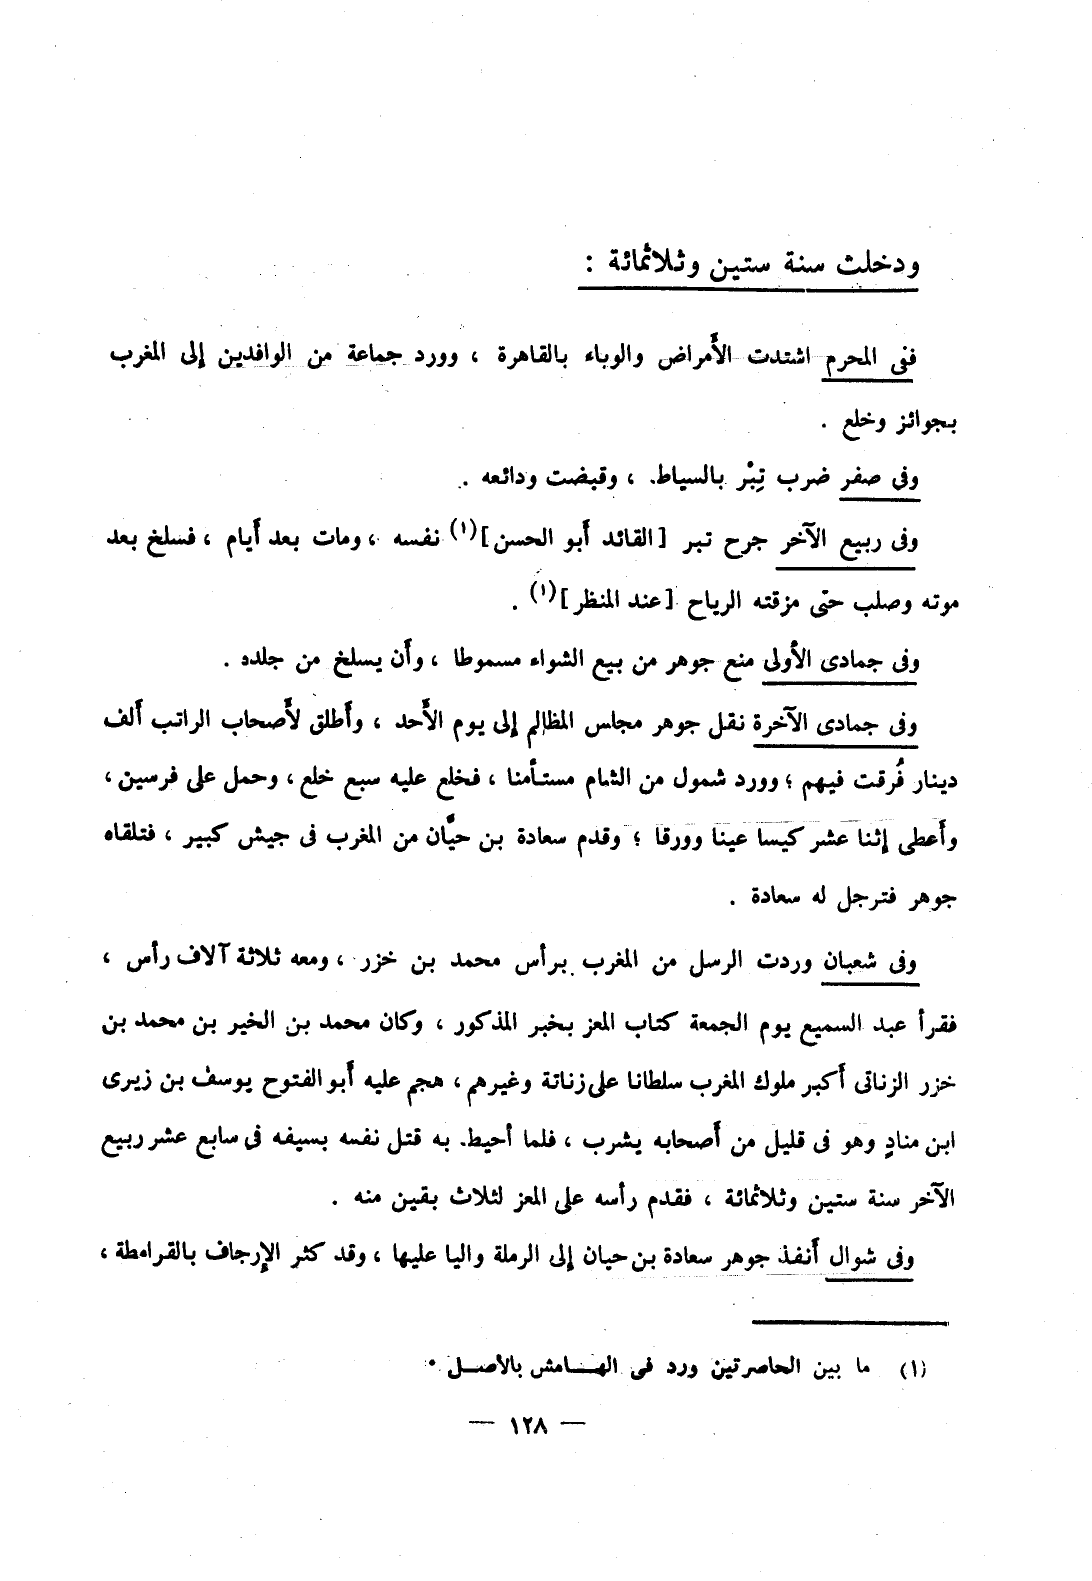 ودخلت سنة ستين وثلاثمائة :
ففى المحرم اشتدت الأمراض والوباء بالقاهرة ، وورد جماعة من الوافدين إلى المغرب
بجوائز وخلع .
وفى صفر ضرب تِبْر بالسياط ، وقبضت ودائعه .
وفى ربيع الآخر جرح تبر [القائد أبو الحسن](١) نفسه ، ومات بعد أيام ، فسلخ بعد
موته وصلب حتى مزقته الرياح [عند المنظر](١) .
وفى جمادى الأولى منع جوهر من بيع الشواء مسموطا ، وأن يسلخ من جلده .
وفى جمادى الآخرة نقل جوهر مجلس المظالم إلى يوم الأحد ، وأطلق لأصحاب الراتب ألف
دينار فُرقت فيهم ؛ وورد شمول من الشام مستأمنا ، فخلع عليه سبع خلع ، وحمل على فرسين ،
وأعطى إثنا عشر كيسا عينا وورقا ؛ وقدم سعادة بن حيَّان من المغرب فى جيش كبير ، فتلقاه
جوهر فترجل له سعادة .
وفى شعبان وردت الرسل من المغرب برأس محمد بن خزر ، ومعه ثلاثة آلاف رأس ،
فقرأ عبد السميع يوم الجمعة كتاب المعز بخبر المذكور ، وكان محمد بن الخير بن محمد بن
خزر الزناتى أكبر ملوك المغرب سلطانا على زناتة وغيرهم ، هجم عليه أبو الفتوح يوسف بن زيرى
ابن منادٍ وهو فى قليل من أصحابه يشرب ، فلما أحيط به قتل نفسه بسيفه فى سابع عشر ربيع
الآخر سنة ستين وثلاثمائة ، فقدم رأسه على المعز لثلاث بقين منه .
وفى شوال أنفذ جوهر سعادة بن حيان إلى الرملة واليا عليها ، وقد كثر الإرجاف بالقرامطة ،
(١) ما بين الحاصرتين ورد فى الهـامش بالأصـل .
— ١٢٨ —